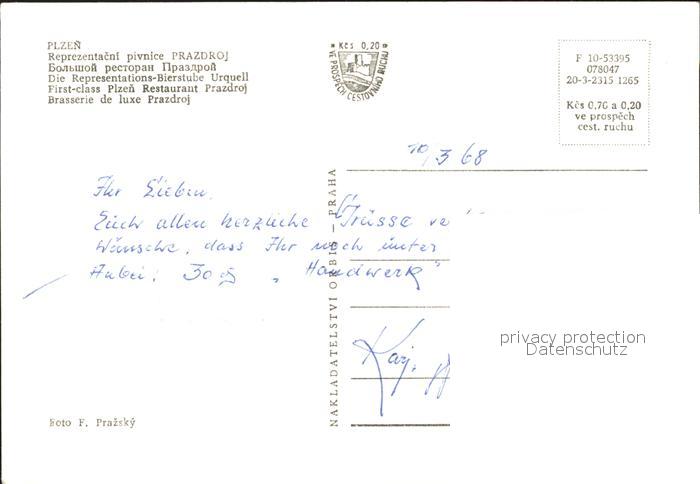 PLZEŇ
Reprezentační pivnice PRAZDROJ
Большой ресторан Праздрой
Die Representations-Bierstube Urquell
First-class Plzeň Restaurant Prazdroj
Brasserie de luxe Prazdroj
* Kčs 0,20 *
VE PROSPĚCH CESTOVNÍHO RUCHU
F 10-53395
078047
20-3-2315 1265
Kčs 0,70 a 0,20
ve prospěch
cest. ruchu
10/3 68
Ihr Lieben,
Euch allen herzliche Grüsse
Wünsche, dass Ihr noch unter
Anbei: 30 „Handwerk"
NAKLADATELSTVÍ ORBIS — PRAHA
privacy protection
Datenschutz
Foto F. Pražský